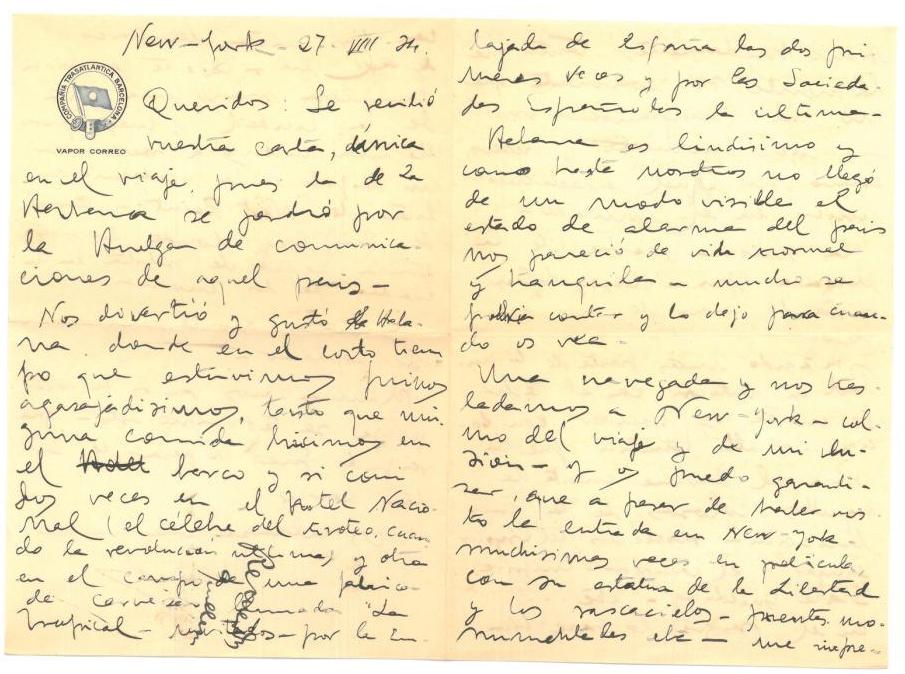 New-York - 27 VIII 34.
COMPAÑIA TRASATLANTICA BARCELONA
VAPOR CORREO
Queridos: Se recibió
vuestra carta, única
en el viaje, pues la de La
Habana se perdió por
la Huelga de comunica-
ciones de aquel pais -
Nos divertió y gustó la Haba-
na, donde en el corto tiem
po que estuvimos fuimos
agasajadisimos, tanto que nin-
guna comida hicimos en
el barco y si comi
dos veces en el Hotel Nacio-
nal (el célebre del tiroteo, cuan
do la revolución ultima) y otra
en el campo de una fabrica
de cerveza llamada "La
Tropical - invitados - por la Em-
bajada de España las dos pri-
meras veces y por las Socieda-
des Españolas la ultima -
Habana es lindisimo y
como hasta nosotros no llegó
de un modo visible el
estado de alarma del pais
nos pareció de vida normal
y tranquila - mucho se
podria contar y lo dejo para cuan-
do os vea -
Una navegada y nos tras-
ladamos a New-York - col-
mo del viaje y de mi ilu-
sion - y os puedo garanti-
zar, que a pesar de haber vis-
to la entrada en New-York -
muchisimas veces en pelicula,
con su estatua de la Libertad
y los rascacielos - puentes mo-
numentales etc - me impre-